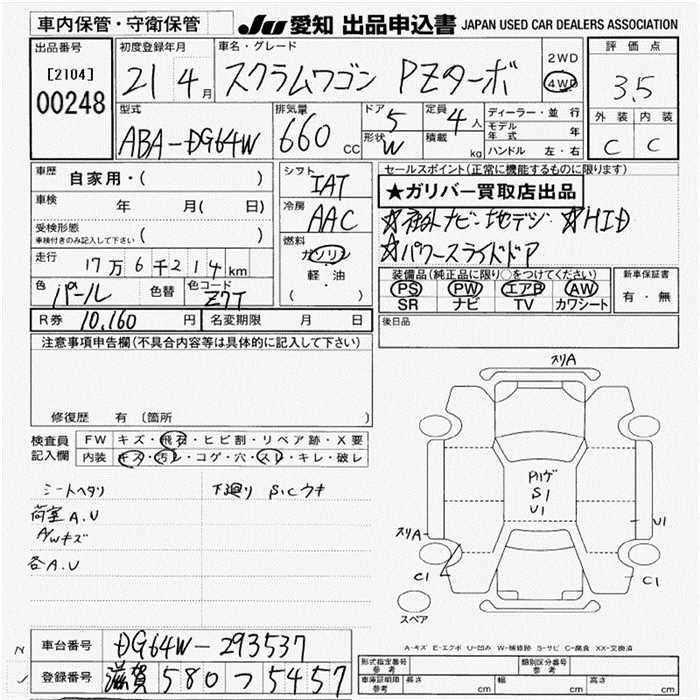 車内保管・守衛保管 JU 愛知 出品申込書 JAPAN USED CAR DEALERS ASSOCIATION
出品番号 初度登録年月 車名・グレード 評価点
[2104] 2WD
00248 21 4月 スクラムワゴン PZターボ 4WD 3.5
型式 排気量 ドア 5 定員 4人 ディーラー・並行 外装 内装
ABA-DG64W 660cc 形状 W 積載 kg モデル年式 年 C C
ハンドル 左・右
車歴 自家用・( ) シフト IAT セールスポイント(正常に機能するものに限ります)
★ガリバー買取店出品
車検 年 月( 日) 冷房 AAC ☆社外ナビ・地デジ ☆HID
受検形態 ( ) ☆パワースライドドア
車検付きのみ記入して下さい
燃料 ガソリン
走行 17万6千214km 軽・油
( ・ )
装備品(純正品に限り○をつけてください) 新車保証書
色 パール 色替 色コード Z7T PS PW エアB AW 有・無
SR ナビ TV カワシート
R券 10,160円 名変期限 月 日 後日品
注意事項申告欄(不具合内容等は具体的に記入して下さい)
修復歴 有 〔箇所
検査員 FW キズ・飛石・ヒビ割・リペア跡・X要
記入欄 内装 キズ・汚レ・コゲ・穴・スレ・キレ・破レ
シートヘタリ 下廻り S,Cウキ
荷室A.U
A/wキズ
各A.U
スリA
Pハゲ
S1
U1
U1
スリA
C1
C1
スペア
A-キズ E-エクボ U-凹み W-補修跡 S-サビ C-腐食 XX-交換済
車台番号 DG64W-293537
登録番号 滋賀 580 つ 5457
形式指定番号 参考 類別区分番号 参考
車庫証明用 参考 長さ cm 幅 cm 高さ cm